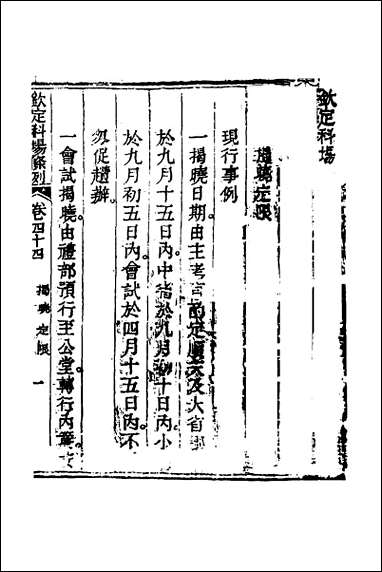 欽定科場
揭曉定限
現行事例
一揭曉日期由主考官酌定順天及大省
於九月十五日內中省於九月初十日內小
於九月初五日內會試於四月十五日內不
忽促趕辦
一會試揭曉由禮部預行至公堂轉行內簾
欽定科場條例 卷四十四 揭曉定限 一